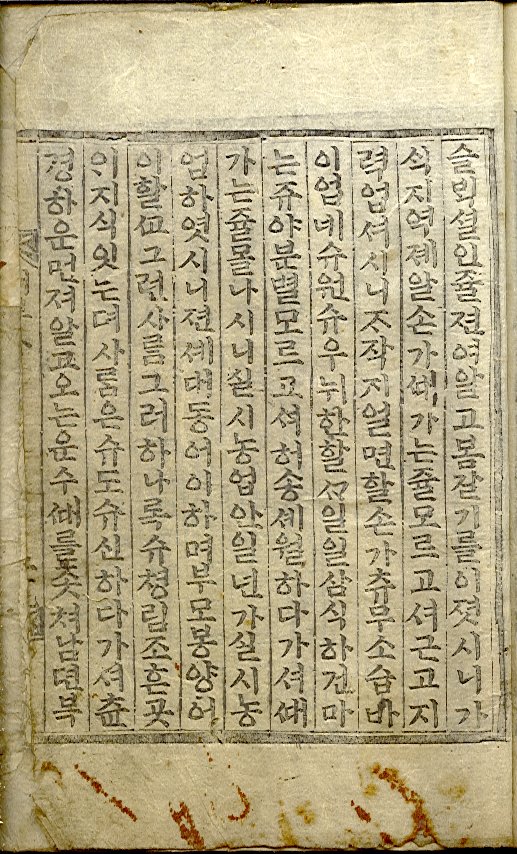 슬릭셜인쥴젼여알고봄잘기를이졋시니가
식지역졔알손가ᄯᆡ가는쥴모르고셔근고지
력업셔시니ᄌᆞ작지얼면할손가츄무소슈ᄇᆞ
이업네슈원슈우뉘한할ᄭᅩ일일삼식하건마
는쥬야분별모르고셔허송셰월하다가셔ᄯᆡ
가는쥴몰나시니실시농업안일넌가실시농
업하엿시니젼셰대동어이하며부모몽양어
이할ᄭᅩ그런사름그러하나록슈쳥림조흔곳
의지식잇는뎌사름은슈도슈신하다가셔츈
경하운먼져알고오는운수ᄯᆡ를ᄶᅩᆺ쳐남면북